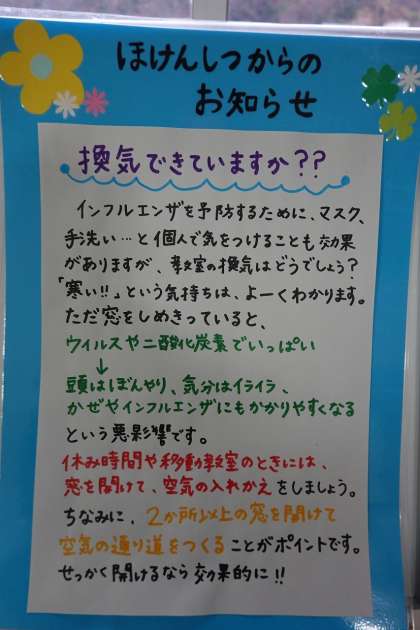 ほけんしつからの
お知らせ
換気できていますか??
インフルエンザを予防するために、マスク、
手洗い…と個人で気をつけることも効果
がありますが、教室の換気はどうでしょう?
「寒い!!」という気持ちは、よーくわかります。
ただ窓をしめきっていると、
ウィルスや二酸化炭素でいっぱい
↓
頭はぼんやり、気分はイライラ、
かぜやインフルエンザにもかかりやすくなる
という悪影響です。
休み時間や移動教室のときには、
窓を開けて、空気の入れかえをしましょう。
ちなみに、2か所以上の窓を開けて
空気の通り道をつくることがポイントです。
せっかく開けるなら効果的に!!